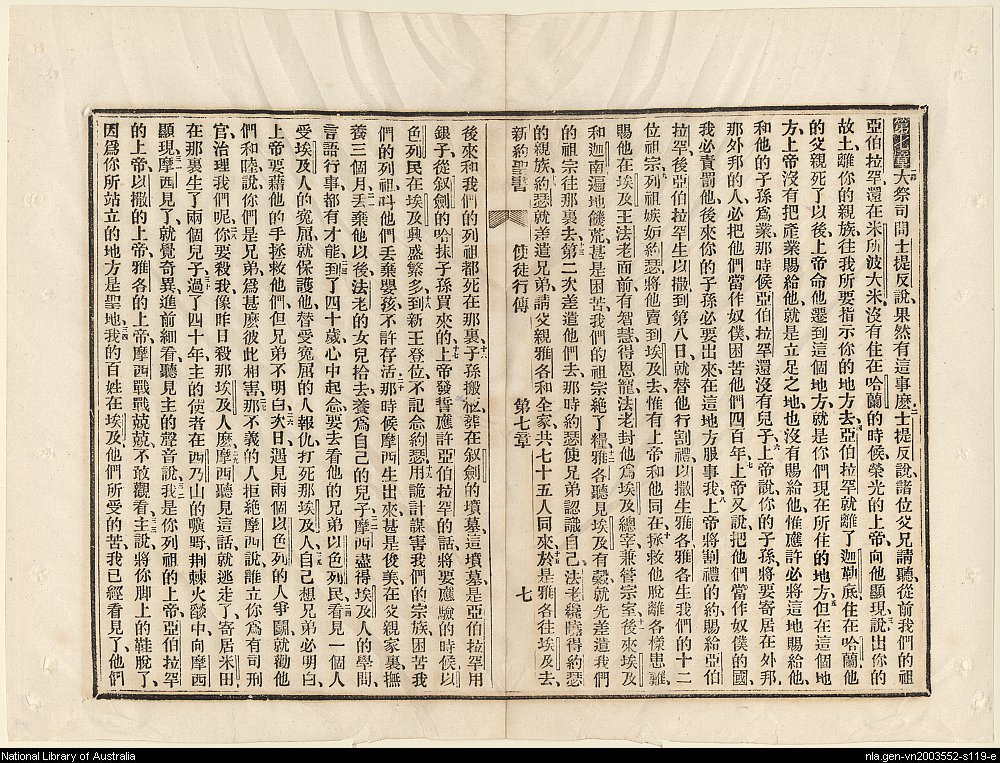 第七章大祭司問士提反說、果然有這事麼、士提反說、諸位父兄請聽、從前我們的祖
亞伯拉罕還在米所波大米沒有住在哈蘭的時候、榮光的上帝向他顯現、說出你的
故土、離你的親族、往我所要指示你的地方去、亞伯拉罕就離了迦勒底住在哈蘭、他
的父親死了以後、上帝命他遷到這個地方、就是你們現在所住的地方、但在這個地
方、上帝沒有把產業賜給他、就是立足之地、也沒有賜給他、惟應許必將這地賜給他、
和他的子孫爲業、那時候亞伯拉罕還沒有兒子、上帝說、你的子孫將要寄居在外邦、
那外邦的人必把他們當作奴僕、困苦他們四百年、上帝又說、把他們當作奴僕的國、
我必責罰他、後來你的子孫必要出來、在這地方服事我、上帝將割禮的約賜給亞伯
拉罕、後亞伯拉罕生以撒、到第八日就替他行割禮、以撒生雅各、雅各生我們的十二
位祖宗、列祖嫉妬約瑟、將他賣到埃及去、惟有上帝和他同在、拯救他脫離各樣患難、
賜他在埃及王法老面前有智慧得恩寵、法老封他爲埃及總宰、兼管宗室、後來埃及
和迦南遍地饑荒、甚是困苦、我們的祖宗絕了糧、雅各聽見埃及有穀、就先差遣我們
的祖宗往那裏去、第二次差遣他們去、那時約瑟使兄弟認識自己、法老纔曉得約瑟
的親族、約瑟就差遣兄弟請父親雅各和全家共七十五人同來、於是雅各往埃及去、
新約聖書 使徒行傳 第七章 七
後來和我們的列祖都死在那裏、子孫搬他葬在叙劍的墳墓、這墳墓是亞伯拉罕用
銀子從叙劍的哈抹子孫買來的、上帝發誓應許亞伯拉罕的話、將要應驗的時候、以
色列民在埃及興盛繁多、到新王登位、不記念約瑟、用詭計謀害我們的宗族、困苦我
們的列祖、叫他們丟棄嬰孩、不許存活、那時候摩西生出來、甚是俊美、在父親家裏撫
養三個月、丟棄他以後、法老的女兒拾去、養爲自己的兒子、摩西盡得埃及人的學問、
言語行事都有才能、到了四十歲、心中起念要去看他的兄弟以色列民、看見一個人
受埃及人的寃屈、就保護他、替受寃屈的人報仇、打死那埃及人、自己想兄弟必明白、
上帝要藉他的手拯救他們、但兄弟不明白、次日遇見兩個以色列的人爭鬬、就勸他
們和睦、說你們是兄弟、爲甚麽彼此相害、那不義的人拒絕摩西說、誰立你爲有司刑
官治理我們呢、你要殺我、像昨日殺那埃及人麽、摩西聽見這話就逃走了、寄居米田、
在那裏生了兩個兒子、過了四十年、主的使者在西乃山的曠野、荆棘火燄中向摩西
顯現、摩西見了、就覺奇異、進前細看、聽見主的聲音說、我是你列祖的上帝、亞伯拉罕
的上帝、以撒的上帝、雅各的上帝、摩西戰戰兢兢不敢觀看、主說、將你脚上的鞋脫了、
因爲你所站立的地方是聖地、我的百姓在埃及、他們所受的苦、我已經看見了、他們
National Library of Australia
nla.gen-vn2003552-s119-e